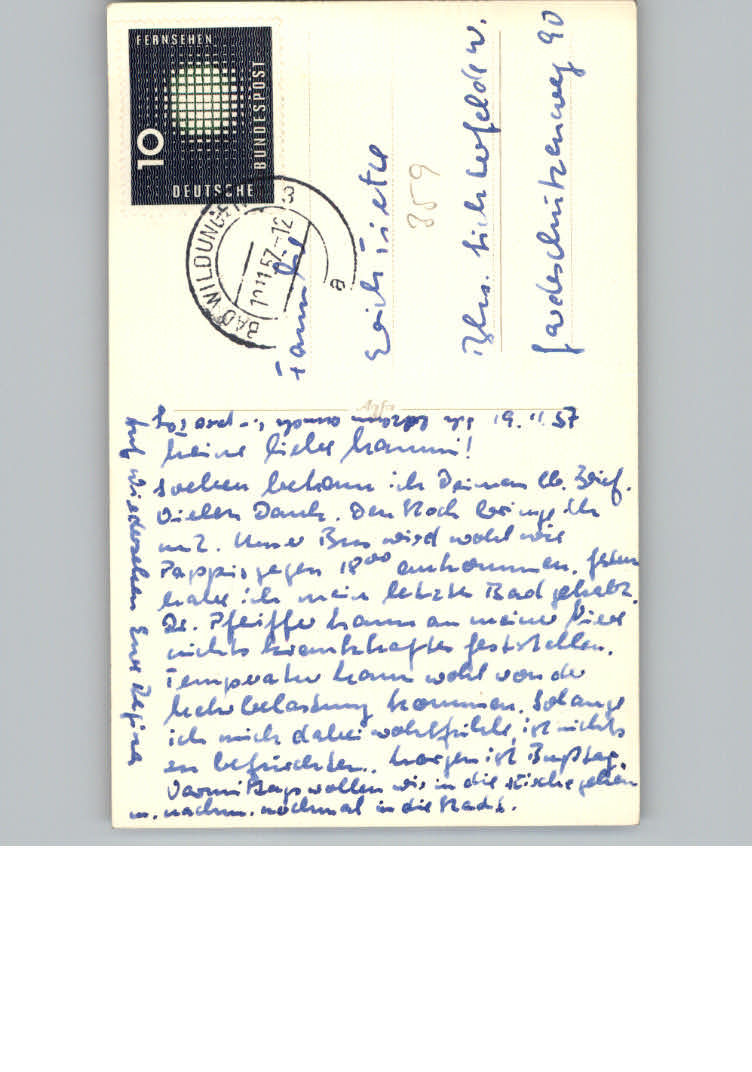 FERNSEHEN
10
DEUTSCHE
BUNDESPOST
BAD WILDUNGEN
19.11.57.-12
a
Familie
Erich
359
Bln. Lichterfelde W.
Gardeschützenweg 90
Agfa
19.11.57
Meine liebe Mammi!
Soeben bekam ich Deinen lb. Brief.
Vielen Dank. Den Rock bringe ich
mit. Unser Bus wird wohl wie
Pappis gegen 18⁰⁰ ankommen. Gestern
habe ich mein letztes Bad gehabt.
Dr. Pfeiffer kann an meiner Niere
nichts krankhaftes feststellen.
Temperatur kann wohl von der
Mehrbelastung kommen. Solange
ich mich dabei wohlfühle, ist nichts
zu befürchten. Morgen ist Bußtag.
Vormittags wollen wir in die Kirche gehen
u. nachm. nochmal in die Stadt.
Auf Wiedersehen Eure Regina